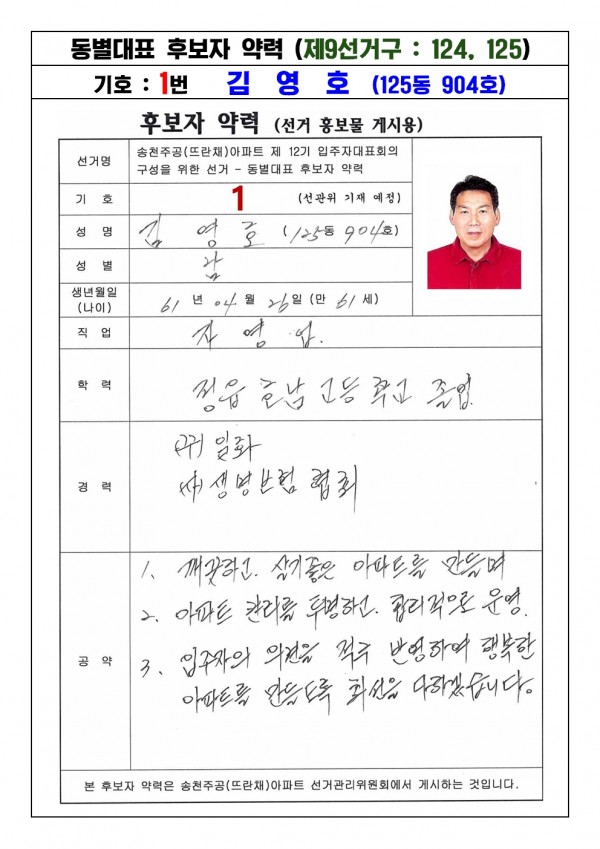 동별대표 후보자 약력 (제9선거구 : 124, 125)
기호 : 1번 김 영 호 (125동 904호)
후보자 약력 (선거 홍보물 게시용)
선거명 송천주공(뜨란채)아파트 제 12기 입주자대표회의
구성을 위한 선거 - 동별대표 후보자 약력
기 호 1 (선관위 기재 예정)
성 명 김 영 호 (125동 904호)
성 별 남
생년월일
(나이) 61 년 04 월 26 일 (만 61 세)
직 업 자 영 업.
학 력 정읍 호남 고등 학교 졸업.
경 력 (구) 일화
(사) 생명보험 협회
공 약
1. 깨끗하고. 살기좋은 아파트를 만들며
2. 아파트 관리를 투명하고. 합리적으로 운영.
3. 입주자의 의견을 적극 반영하여 행복한
아파트를 만들도록 최선을 다하겠습니다.
본 후보자 약력은 송천주공(뜨란채)아파트 선거관리위원회에서 게시하는 것입니다.